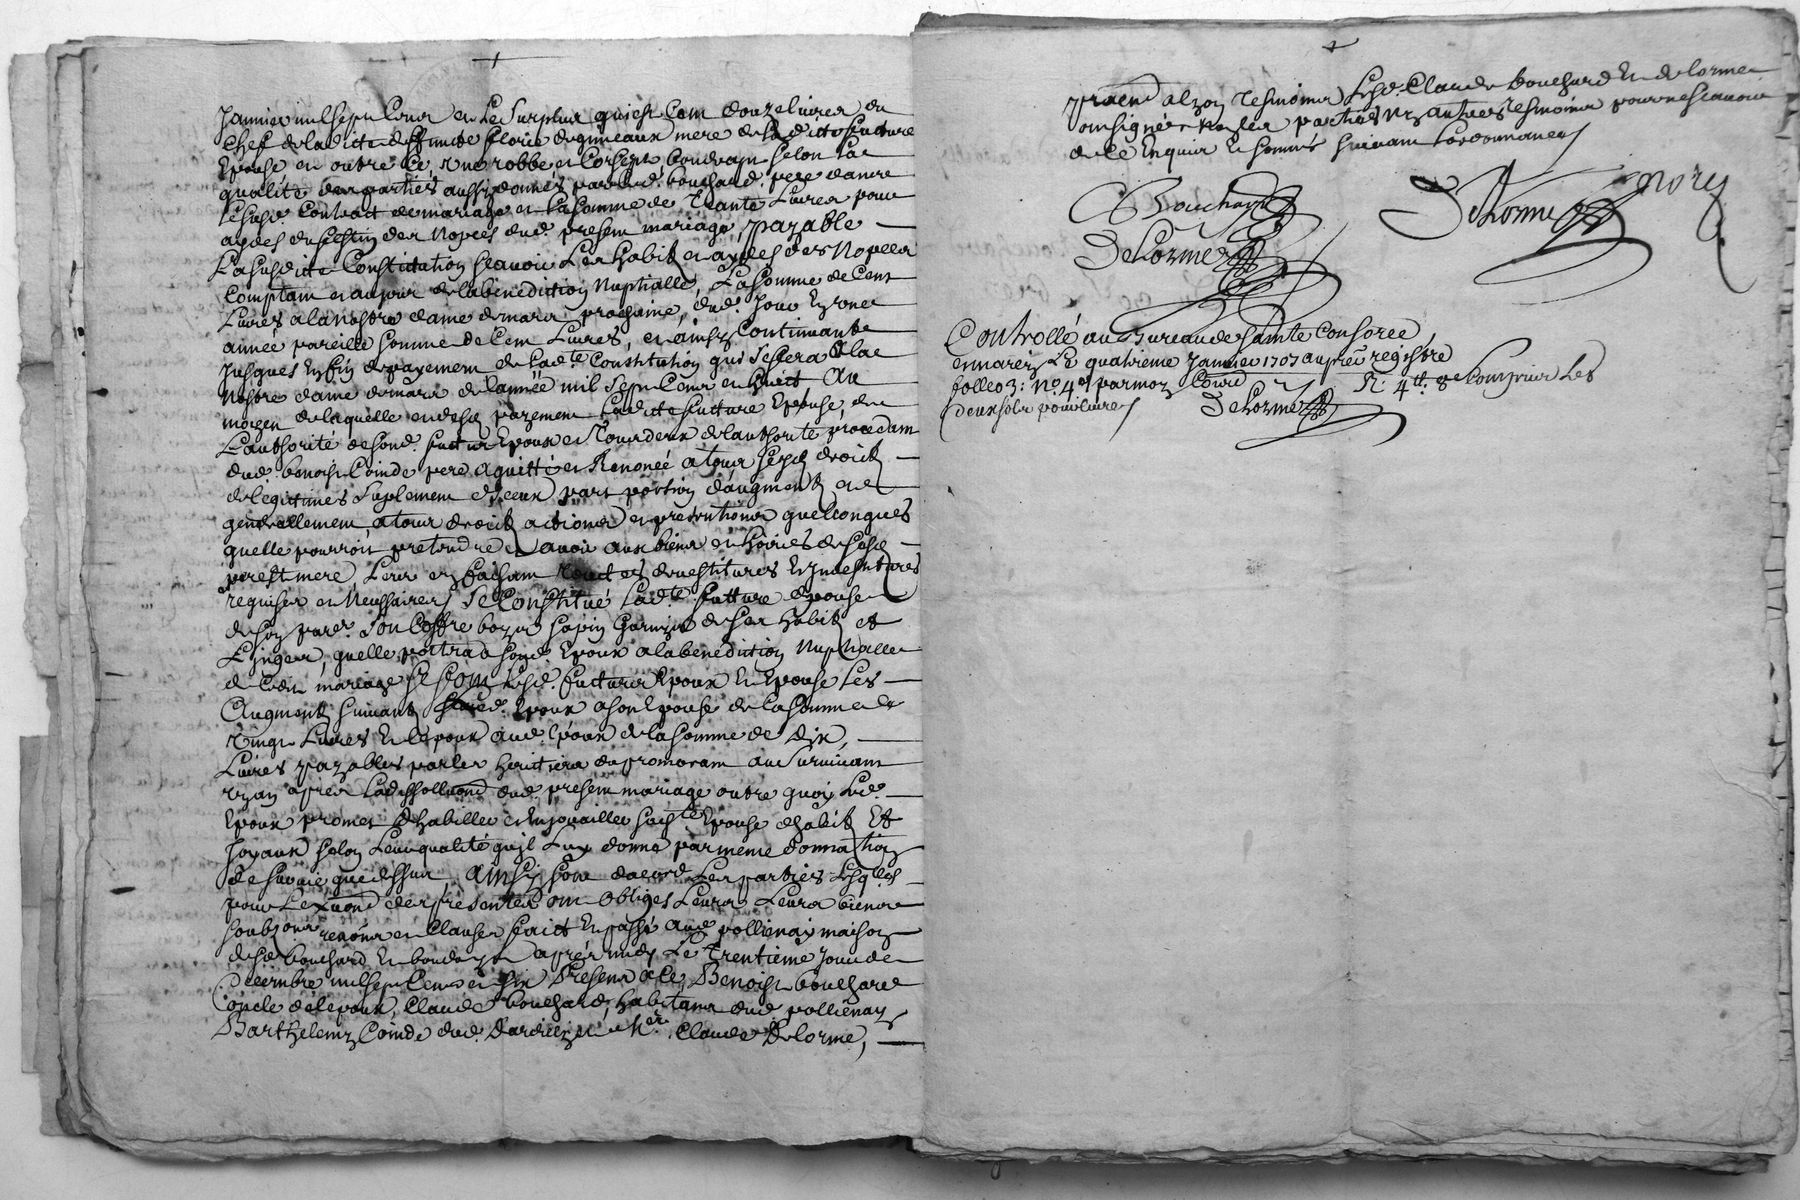 Janvier mil sept Cens et Le Surplus qui est Cent douze livres du
Chef de laditte deffunte florie mere de la ditte future
Epouse en outre ce, une robbe et Corset selon la
qualité des parties aussy donnés par led. bouchard pere dans
lesusd. Contract de mariage et la somme de Trante Livres pour
aydes du festin des Nopces dud. present mariage, payable
La susditte Constitution scavoir Les habits et aydes des Nopces
Comptant et au jour de la benediction Nuptialle, La somme de Cent
Livres a la nostre dame de mars prochaine, dud. Jour En une
année pareille somme de Cent Livres, et ainsy Continuant
Jusques En fin de payement de lad.te Constitution qui se fera a la
Nostre dame de mars de lannée mil sept Cens et huict Au
moyen de laquelle et desd. payement laditte future Epouse, de
L'authorité de sond. futur Epoux et Tous deux de lauthorité procedant
dud. benoist Coinde pere a quitté et Renoncé a tous sesd. droicts
de legitimes suplement d'iceux part portion d'augment et
generallement a tous droicts actions et pretentions quelconques
quelle pourroit pretendre et avoir aux biens et hoiries de sesd.
pere et mere, Leur en faisant devestitures Investitures
requises et Necessaires Se Constitue Lad.te future Epouse
de soy par. Son Coffre boys sapin Garnys de ses habits et
Linges, quelle portera a sond. Epoux a la benediction Nuptialle
dud. mariage Se font lesd. futurs Epoux Et Epouse Les
Augments suivants led. Epoux a son Epouse de la somme de
Vingt Livres Et lepouse aud. Epoux de la somme de Dix,
Livres payables par les heritiers du premourant au Survivant
un an apres La dissollution dud. present mariage outre quoy Led.
Epoux promet d'habiller et Enjouailler sad.te Epouse d'habits Et
Joyaux selon Leur qualité qu'il Luy donne par meme donnation
de survie que dessus Ainsy sont dacord Les parties lesq.les
pour des presentes ont Obligés Leurs Leurs biens
soubzons renons et Clauses faict Et passé aud. pollienay maison
dud. bouchard apres midy Le Trentieme Jour de
Decembre mil sept Cens et Six Presents a Ce, Benoist bouchard
oncle de lepoux, Claude bouchard, habitans dud. pollienay
Barthelemy Coinde dud. et Me. Claude Delorme,
Lesd. Claude bouchard Et delorme
ont signés Non les parties Ny autres Tesmoins pour ne scavoir
de ce Enquis Et sommés suivant Lordonnance
C Bouchard
Delorme
Delorme
Controllé au Bureau de Sainte Consorce
et marcy Le quatrieme Janvier 1707 au pre registre
folleo 3: No. 4 par moy R: 4ll. 8s Compris Les
deux sols pour livre
Delorme